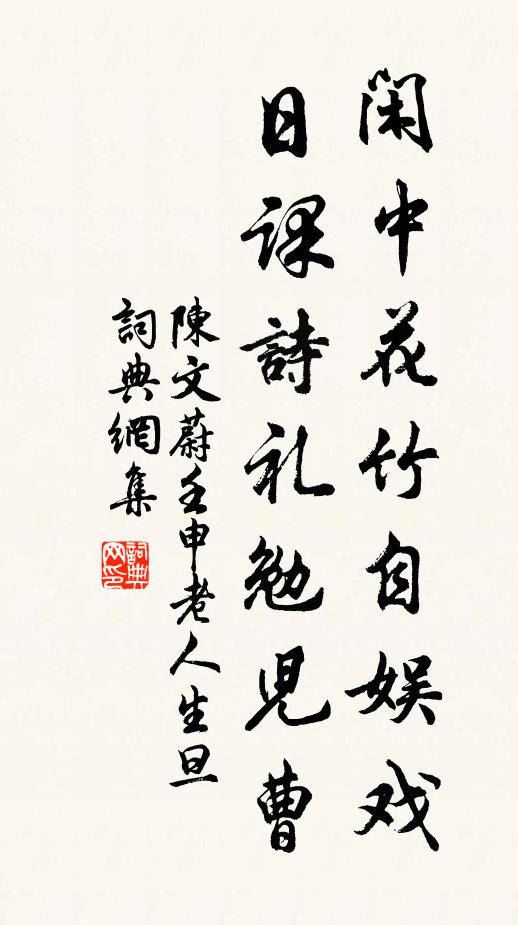 閑中花竹自娱戏
日課詩礼勉児曹
陳文蔚壬申老人生旦
詞典網集
詞典网印